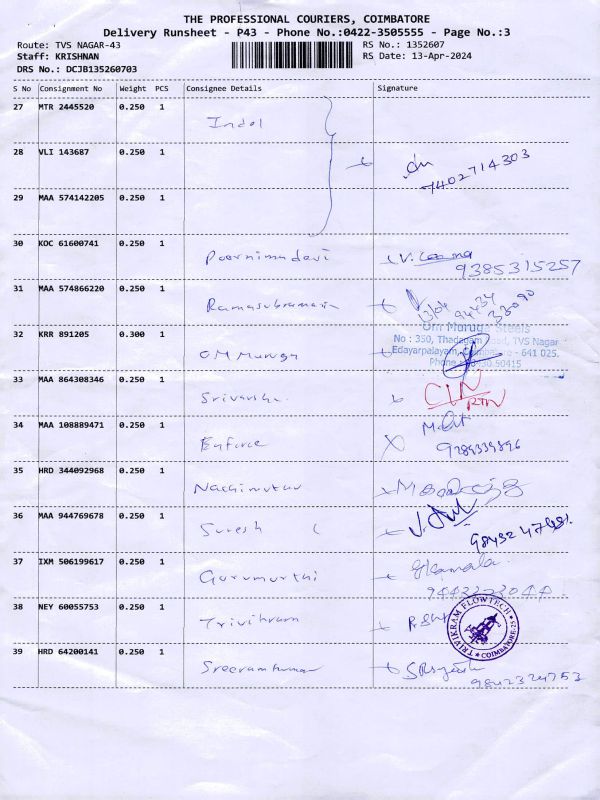 THE PROFESSIONAL COURIERS, COIMBATORE
Delivery Runsheet - P43 - Phone No.:0422-3505555 - Page No.:3
Route: TVS NAGAR-43 RS No.: 1352607
Staff: KRISHNAN RS Date: 13-Apr-2024
DRS No.: DCJB135260703
S No Consignment No Weight PCS Consignee Details Signature
27 MTR 2445520 0.250 1
Indel
28 VLI 143687 0.250 1
7402714303
29 MAA 574142205 0.250 1
30 KOC 61600741 0.250 1
Poornimadevi
9385315257
31 MAA 574866220 0.250 1
Ramasubramani
13/04
32 KRR 891205 0.300 1
OM Muruga
Om Muruga Steels
No : 350, Thadagam Road, TVS Nagar
Edayarpalayam, Coimbatore - 641 025.
33 MAA 864308346 0.250 1
Srivarsha
34 MAA 108889471 0.250 1
Enforce
9289339896
35 HRD 344092968 0.250 1
Nachimuthu
36 MAA 944769678 0.250 1
Suresh
37 IXM 506199617 0.250 1
Gurumurthi
38 NEY 60055753 0.250 1
Trivikram
TRIVIKRAM FLOWTECH
COIMBATORE
39 HRD 64200141 0.250 1
Sreeramkumar
9842324753